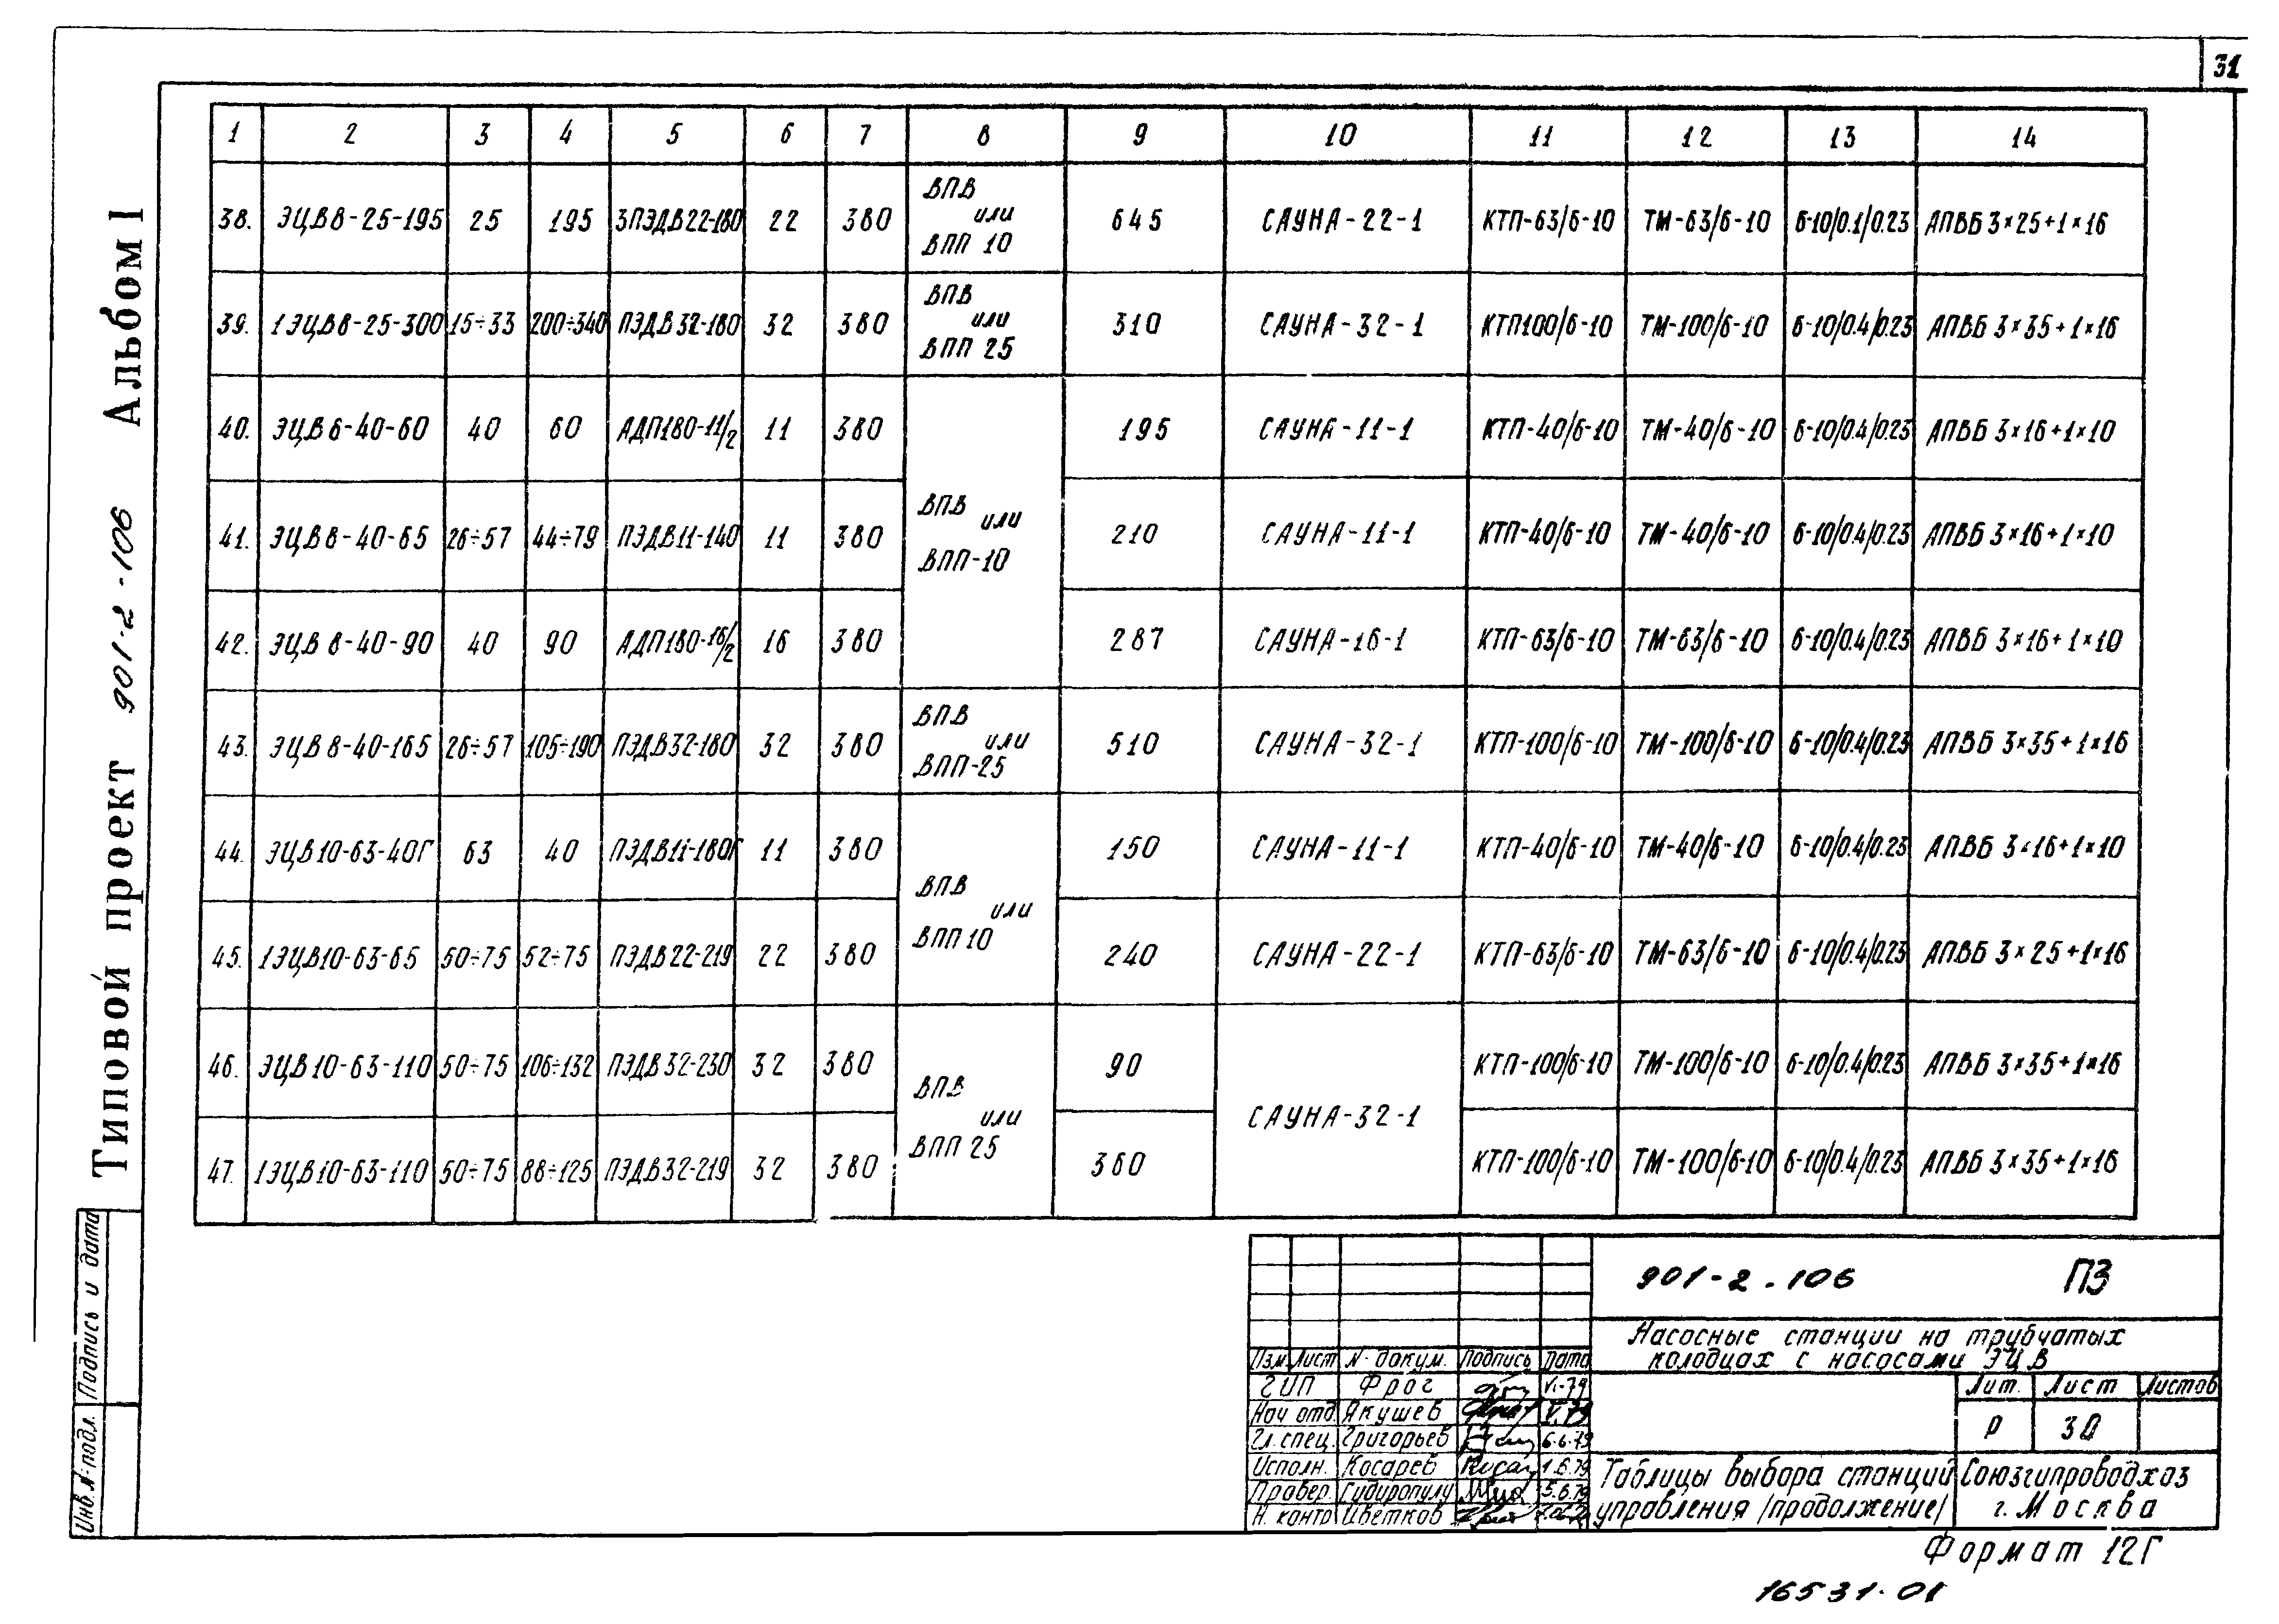 31
Типовой проект 901-2-106 Альбом I
1 2 3 4 5 6 7 8 9 10 11 12 13 14
38. ЭЦВ8-25-195 25 195 3ПЭДВ22-180 22 380 ВПВ или ВПП 10 645 САУНА-22-1 КТП-63/6-10 ТМ-63/6-10 6-10/0.1/0.23 АПВБ 3×25+1×16
39. 1ЭЦВ8-25-300 15÷33 200÷340 ПЭДВ32-180 32 380 ВПВ или ВПП 25 310 САУНА-32-1 КТП100/6-10 ТМ-100/6-10 6-10/0.4/0.23 АПВБ 3×35+1×16
40. ЭЦВ6-40-60 40 60 АДП180-11/2 11 380 ВПВ или ВПП-10 195 САУНА-11-1 КТП-40/6-10 ТМ-40/6-10 6-10/0.4/0.23 АПВБ 3×16+1×10
41. ЭЦВ8-40-65 26÷57 44÷79 ПЭДВ11-140 11 380 210 САУНА-11-1 КТП-40/6-10 ТМ-40/6-10 6-10/0.4/0.23 АПВБ 3×16+1×10
42. ЭЦВ 8-40-90 40 90 АДП180-16/2 16 380 287 САУНА-16-1 КТП-63/6-10 ТМ-63/6-10 6-10/0.4/0.23 АПВБ 3×16+1×10
43. ЭЦВ 8-40-165 26÷57 105÷190 ПЭДВ32-180 32 380 ВПВ или ВПП-25 510 САУНА-32-1 КТП-100/6-10 ТМ-100/6-10 6-10/0.4/0.23 АПВБ 3×35+1×16
44. ЭЦВ10-63-40Г 63 40 ПЭДВ11-180Г 11 380 ВПВ или ВПП 10 150 САУНА-11-1 КТП-40/6-10 ТМ-40/6-10 6-10/0.4/0.23 АПВБ 3×16+1×10
45. 1ЭЦВ10-63-65 50÷75 52÷75 ПЭДВ22-219 22 380 240 САУНА-22-1 КТП-63/6-10 ТМ-63/6-10 6-10/0.4/0.23 АПВБ 3×25+1×16
46. ЭЦВ10-63-110 50÷75 106÷132 ПЭДВ32-230 32 380 ВПВ или ВПП 25 90 САУНА-32-1 КТП-100/6-10 ТМ-100/6-10 6-10/0.4/0.23 АПВБ 3×35+1×16
47. 1ЭЦВ10-63-110 50÷75 88÷125 ПЭДВ32-219 32 380 360 КТП-100/6-10 ТМ-100/6-10 6-10/0.4/0.23 АПВБ 3×35+1×16
Подпись и дата
Инв. № подл.
901-2-106 ПЗ
Насосные станции на трубчатых
колодцах с насосами ЭЦВ
Изм. Лист № докум. Подпись Дата
ГИП Фрог VI-79
Нач отд. Якушев VI.79
Гл. спец. Григорьев 6.6.79
Исполн. Косарев 1.6.79
Провер. Гудиропулу 5.6.79
Н. контр Цветков
Лит. Лист Листов
Р 30
Таблицы выбора станций
управления /продолжение/
Союзгипроводхоз
г. Москва
Формат 12Г
16531-01